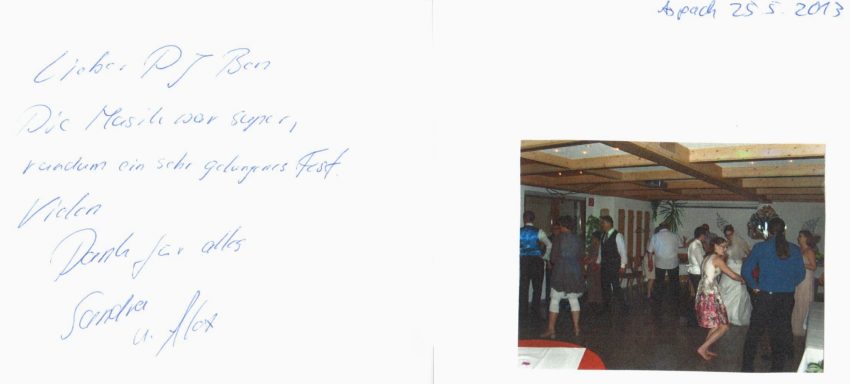 Lieber DJ Ben
Die Musik war super,
rundum ein sehr gelungenes Fest.
Vielen
Dank für alles
Sandra
u. Alex
Aspach 25.5.2013